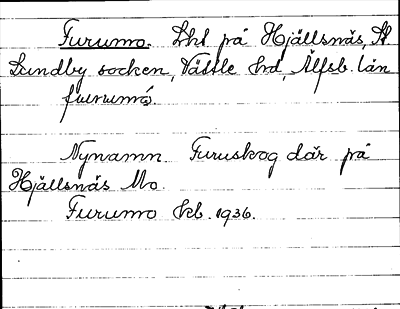 Furumo. Lht på Hjällsnäs, St
Lundby socken, Vättle hd, Älfsb. län
furumó.
Nynamn. Furuskog där på
Hjällsnäs Mo.
Furumo Ekb. 1936.